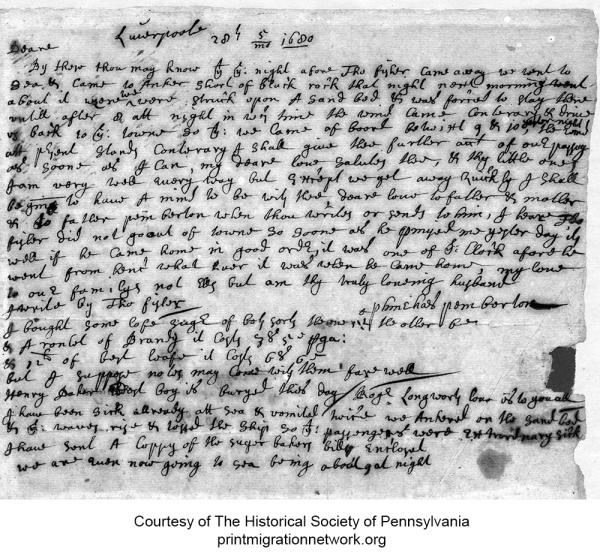 Liverpoole 28th 5/mo 1680
Deare
By these thou may know yt ye: night afore Tho fisher came away we went to
sea & came to Anker short of black rock that night next morning went
about it where we were struck upon A sand bed & was forced to stay there
untill after 8 att night in wch time the wind came contrary & drive
us back to ye: towne so yt: we came of boord betwixt 9 & 10 the wind
att psent stands contrary I shall give thee further act of our passag
as soone as I can, my deare love salutes thee, & thy little one
I am very well every way but Except we get away quickly I shall
begin to have A mind to be with thee, deare love to father & mother
& to father pemberton when thou writes or sends to him, I heare Tho
fisher did not goout of towne so soone as he pmysed me yester day its
well if he came home in good order, it was one of ye: Clock afore he
went from hence what hour it was when he came home, my love
to our familys not Els but am thy truly loveing husband
I write by Tho fisher
phinehas pemberton
I bought some lofe sugr of both sorts the one the other
& A ronlet of Brandy it cost 38s
& of best it costs 68s
but I suppose not may come with them farewell
Henry Baker boy is buryed this day Rogr Longworth love is to you all
I have been sick already att sea & vomited twice we Ankered on the sand bed
& ye: waves rise & tossed the ship so ye: passengers were Extraordinary sick
I have sent A Coppy of the suger bakers bill Enclosed
we are even now going to sea being about 9 at night
Courtesy of The Historical Society of Pennsylvania
printmigrationnetwork.org